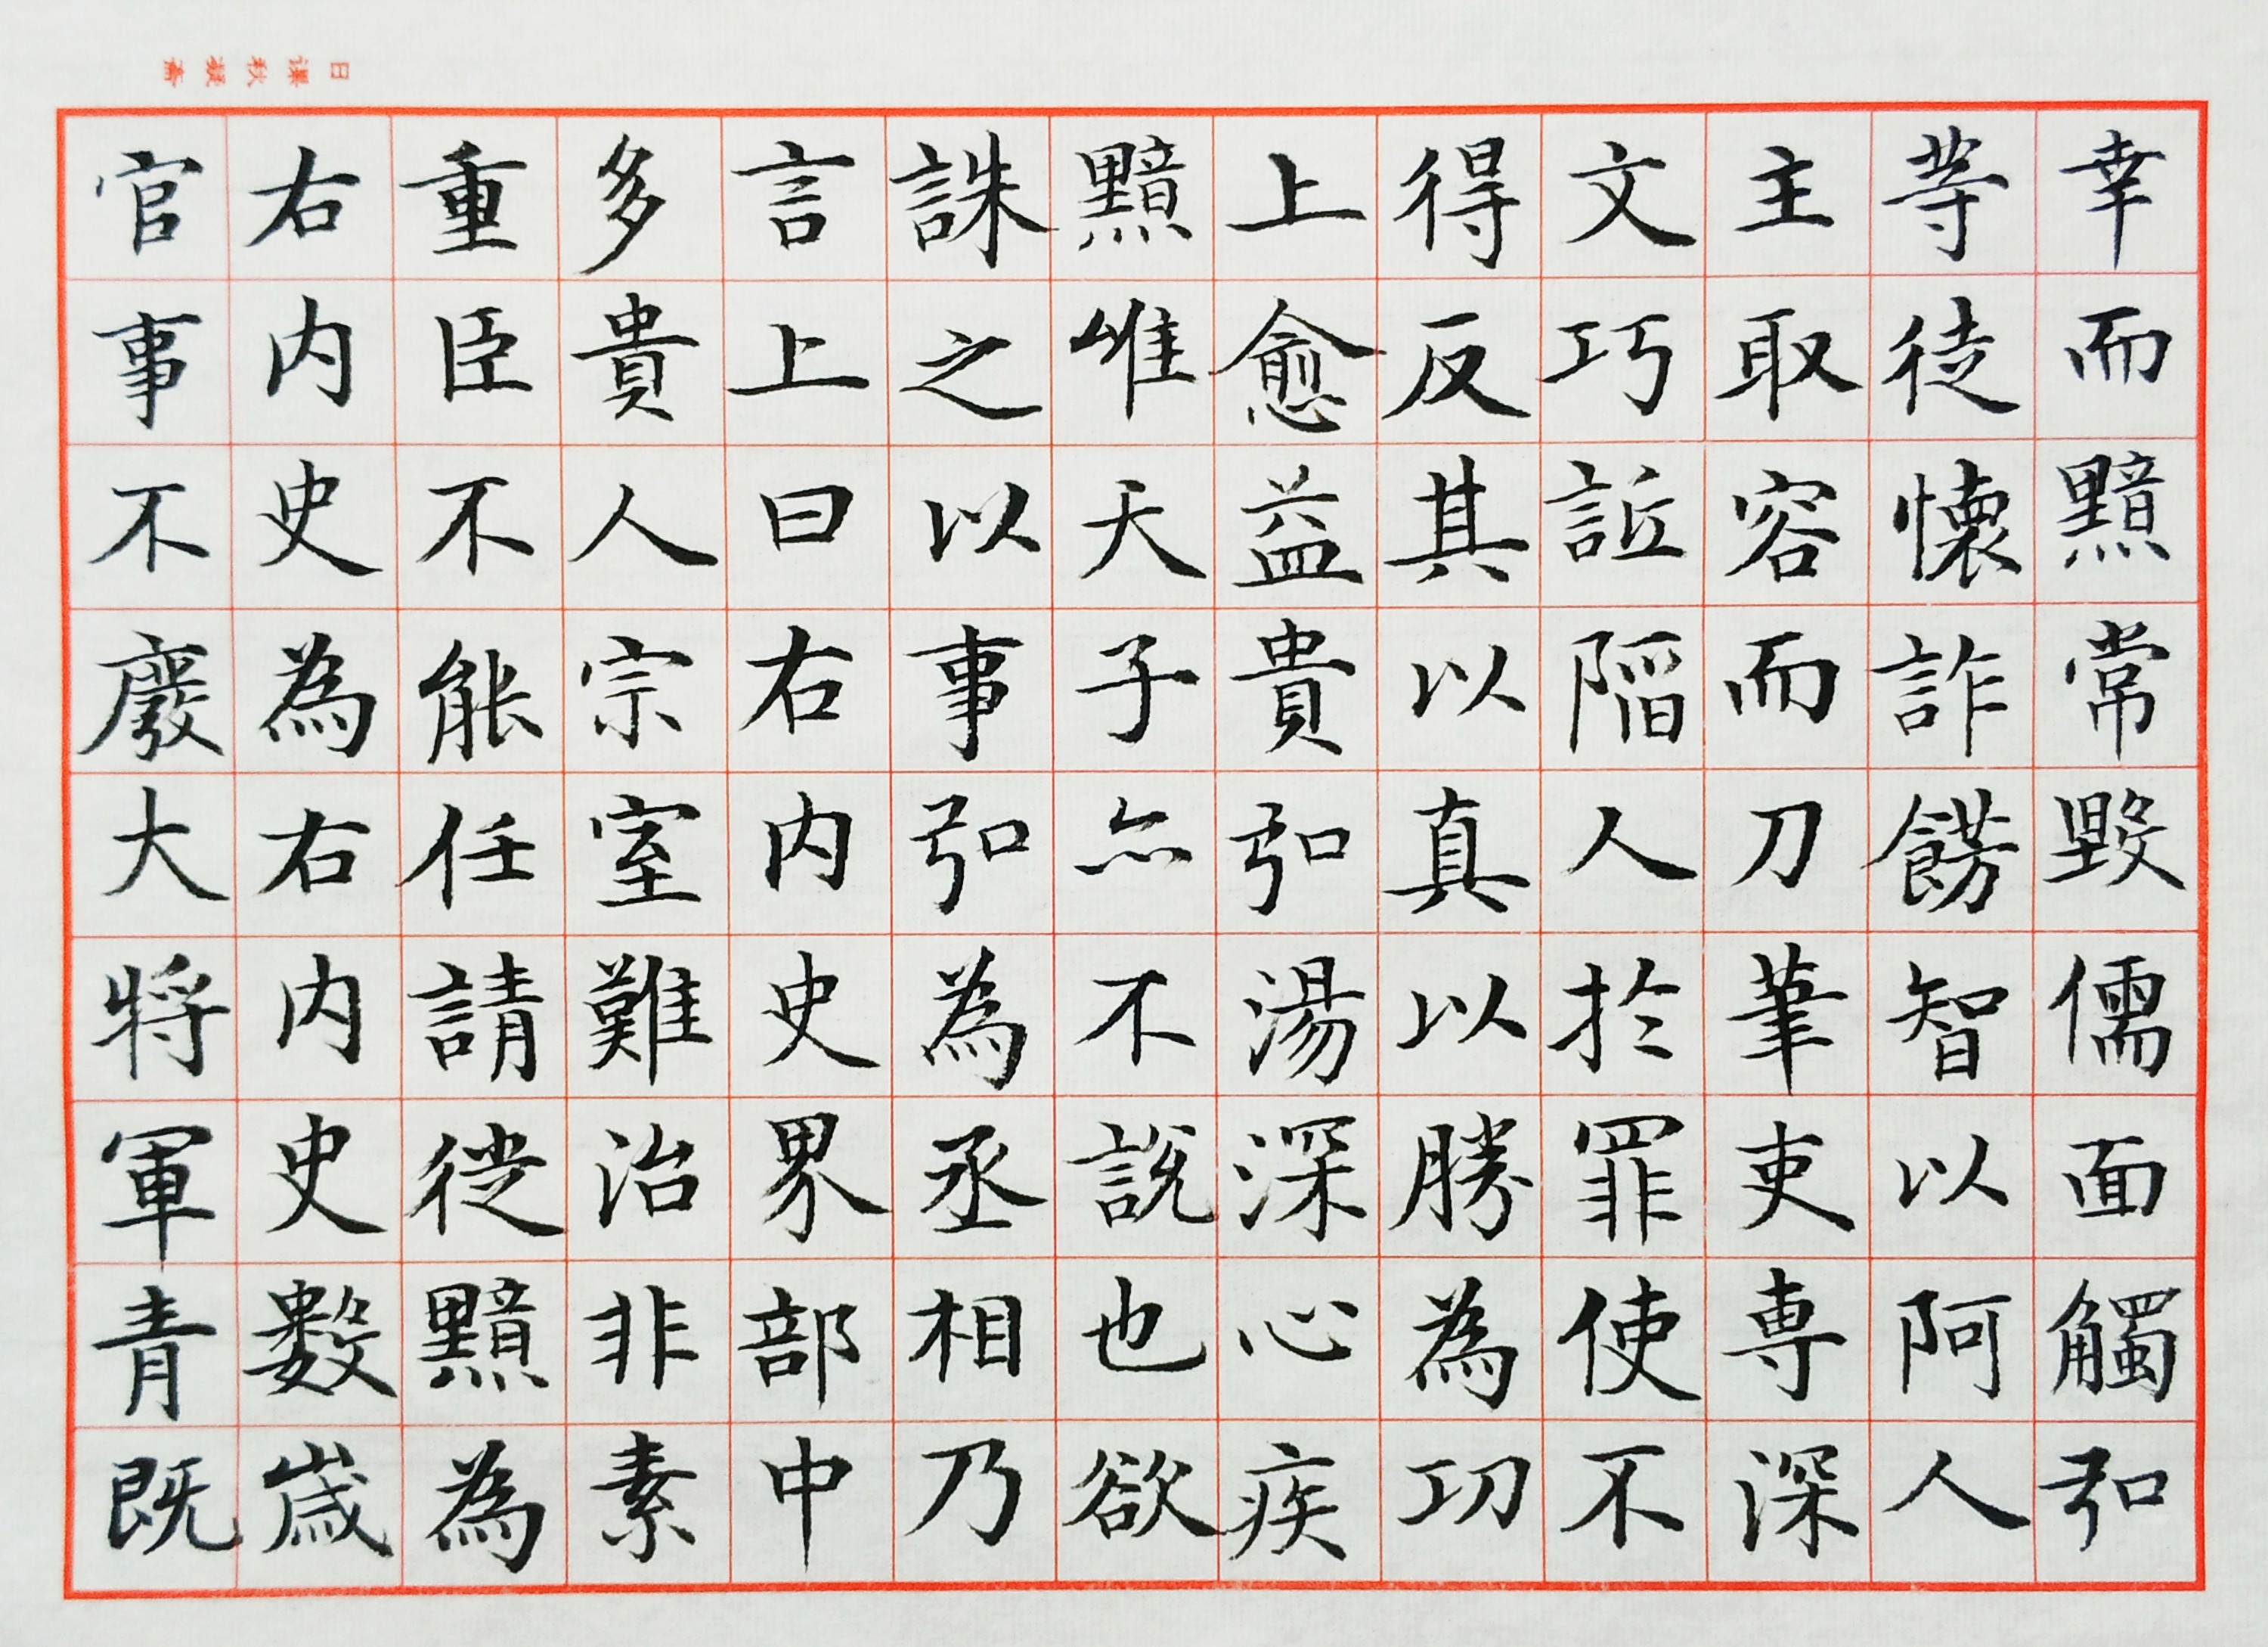 幸而黯常毀儒面觸弘
等徒懷詐飾智以阿人
主取容而刀筆吏専深
文巧詆陷人於罪使不
得反其以真以勝為功
上愈益貴弘湯深心疾
黯唯天子亦不說也欲
誅之以事弘為丞相乃
言上曰右内史界部中
多貴人宗室難治非素
重臣不能任請徙黯為
右内史為右内史數歲
官事不廢大將軍青既